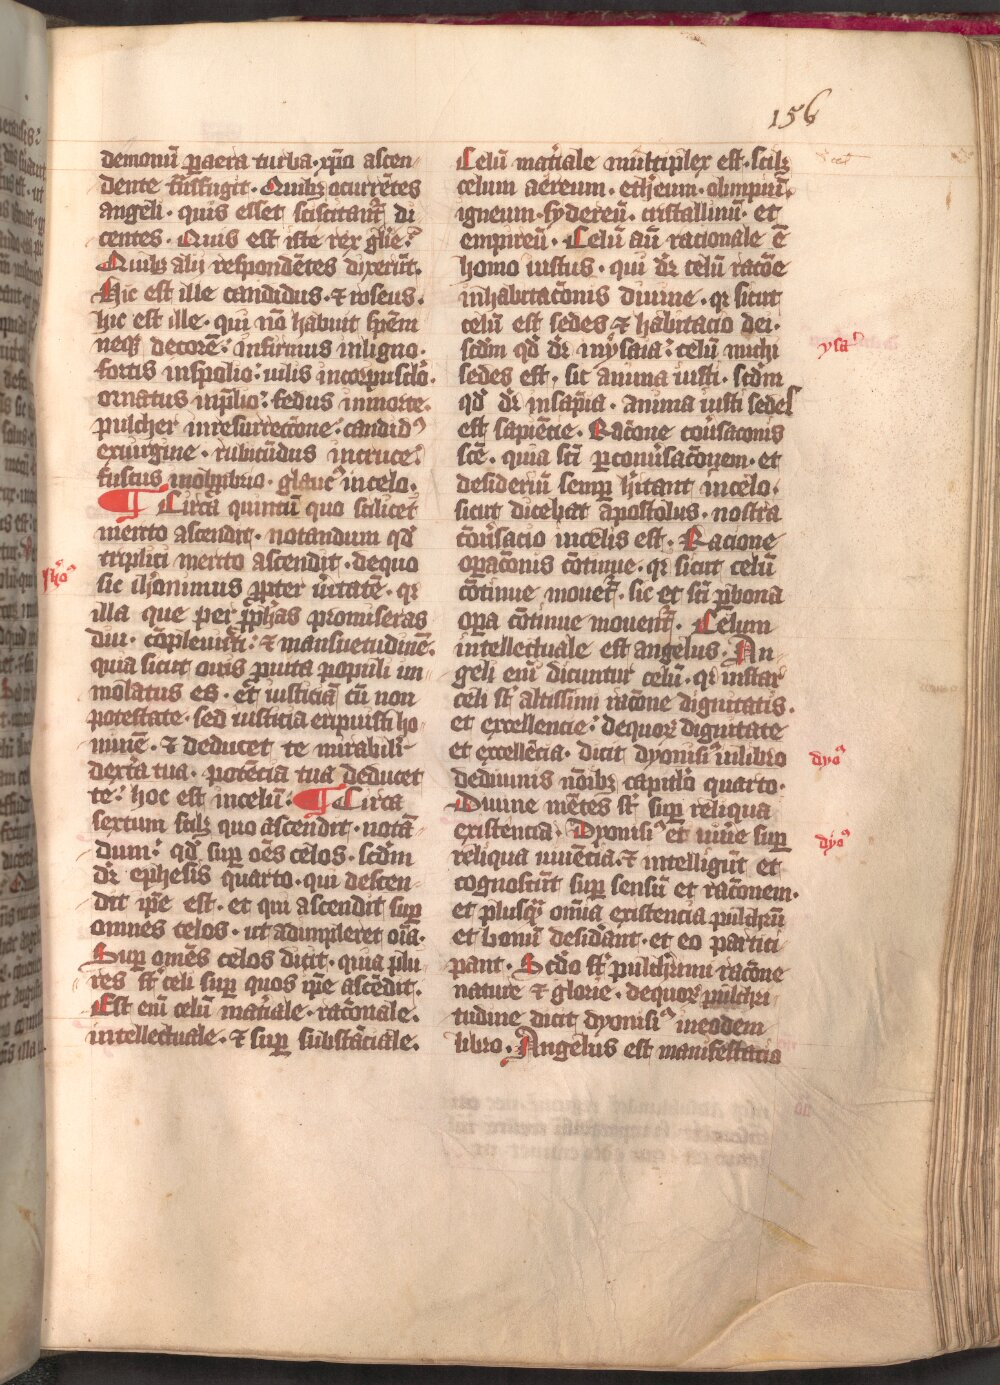 156
demoniū ꝑ aera turba · xp̄o ascen
dente t̄nsfugit · Quibꝫ ocurrētes
angeli · quis esset sciscitant̄ di
centes · Quis est iste rex gl̄ie ?
Quibꝫ alij respondētes dixerūt ·
Hic est ille candidus · ⁊ roseus ·
hic est ille · qui nō habuit spēm
neqꝫ decorē : infirmus inligno ·
fortis inspolio : uilis incorpusclō ·
ornatus inp̄lio : fedus inmorte ·
pulcher inresurrectōne : candidꝰ
exuirgine · rubicūdus incruce :
fuscus inobprobrio · glaucꝰ incelo ·
¶ Circa quintū quo scilicet
merito ascendit · notandum qd̄
triplici merito ascendit · dequo
sic ih̄onimus ꝓpter ūitatē · qr
illa que per ꝓph̄as promiseras
diu · cōpleuisti : ⁊ mansuetudinē ·
quia sicut ouis ꝓ uita populi im
molatus es · et iusticiā cū non
potestate · sed iusticia eripuisti ho
minē · ⁊ deducet te mirabili
dext̄a tua · potēcia tua deducet
te : hoc est incelū : ¶ Circa
sextum scilꝫ quo ascendit · notā
dum : qd̄ suꝑ oēs celos · scd̄m
dr̄ ephesis quarto · qui descen
dit ip̄e est · et qui ascendit suꝑ
omnes celos · ut adimpleret oīa ·
Suꝑ om̄es celos dicit · quia plu
res st̄ celi suꝑ quos ip̄e ascēdit ·
Est enī celū mat̄iale · racōnale ·
intellectuale · ⁊ suꝑ substāciale ·
ih̄oꝰ
Celū mat̄iale multiplex est · scilꝫ
celum aereum · ethereum · olimpiū ·
igneum · sydereū · cristallinū · et
empireū · Celū aū racionale ē
homo iustus · qui dr̄ celū racōe
inhabitacōnis diuine · qr sicut
celū est sedes ⁊ habitacio dei ·
scd̄m qd̄ dr̄ inysaia : celū michi
sedes est , sic anima iusti · scd̄m
qd̄ dr̄ insap̄ia · anima iusti sedes
est sapiēcie · Racōne conūsacōnis
scē · quia sc̄i ꝑ conūsacōnem · et
desideriū semꝑ h̄itant incelo ·
sicut dicebat apostolus · nostra
cōūsacio incelis est · Racione
oꝑacōnis cōtinue · qr sicut celū
cōtinue mouet̄ · sic et sc̄i ꝑ bona
oꝑa cōtinue mouent̄ · Celum
intellectuale est angelus · An
geli enī dicuntur celū · qr instar
celi st̄ altissimi racōne dignitatis ·
et excellencie : dequoꝝ dignitate
et excellēcia · dicit dyonisiꝰ inlibro
dediuinis nōibꝫ capitlō quarto ·
Diuine mētes st̄ suꝑ reliqua
existencia · Dyonisiꝰ et uiue suꝑ
reliqua uiuēcia ⁊ intelligūt et
cognoscūt suꝑ sensū et racōnem ·
et plusqᷓ om̄ia existencia pulchrū
et bonū desid̄ant · et eo partici
pant · Scd̄o st̄ pulch̄imi racōne
nature ⁊ glorie · dequoꝝ pulchri
tudine dicit dyonisiꝰ ineodem
libro · Angelus est manifestacio
ysaꝰ
dyoꝰ
dyoꝰ